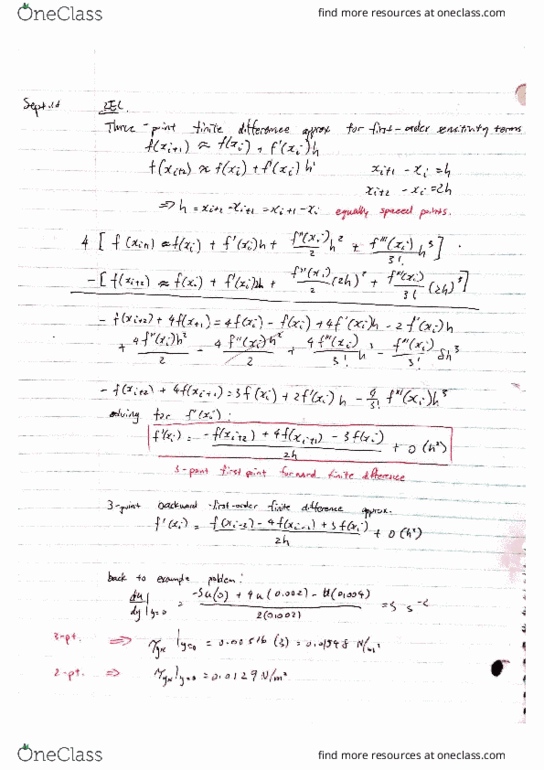 OneClass
find more resources at oneclass.com
Sept. 16
Three-point finite difference approx for first-order sensitivity terms
f(xᵢ₊₁) ≈ f(xᵢ) + f'(xᵢ)h
f(xᵢ₊₂) ≈ f(xᵢ) + f'(xᵢ)h'
xᵢ₊₁ - xᵢ = h
xᵢ₊₂ - xᵢ = 2h
⇒ h = xᵢ₊₂ - xᵢ₊₁ = xᵢ₊₁ - xᵢ equally spaced points.
4 [ f(xᵢ₊₁) ≈ f(xᵢ) + f'(xᵢ)h + f''(xᵢ)/2 h² + f'''(xᵢ)/3! h³ ]
- [ f(xᵢ₊₂) ≈ f(xᵢ) + f'(xᵢ)2h + f''(xᵢ)/2 (2h)² + f'''(xᵢ)/3! (2h)³ ]
- f(xᵢ₊₂) + 4f(xᵢ₊₁) = 4f(xᵢ) - f(xᵢ) + 4f'(xᵢ)h - 2f'(xᵢ)h
+ 4f''(xᵢ)h²/2 - 4f''(xᵢ)h²/2 + 4f'''(xᵢ)/3! h³ - f'''(xᵢ)/3! 8h³
- f(xᵢ₊₂) + 4f(xᵢ₊₁) = 3f(xᵢ) + 2f'(xᵢ)h - 4/3! f'''(xᵢ)h³
solving for f'(xᵢ):
f'(xᵢ) = -f(xᵢ₊₂) + 4f(xᵢ₊₁) - 3f(xᵢ) / 2h + O(h²)
3-point first point forward finite difference
3-point backward first-order finite difference approx.
f'(xᵢ) = f(xᵢ₋₂) - 4f(xᵢ₋₁) + 3f(xᵢ) / 2h + O(h²)
back to example problem:
du/dy|y=0 = -3u(0) + 4u(0.002) - u(0.004) / 2(0.002) = 3 s⁻¹
3-pt. ⇒ |y=0 = (3) = 0.01548 N/m²
2-pt ⇒ |y=0 = 0.0129 N/m²
OneClass
find more resources at oneclass.com